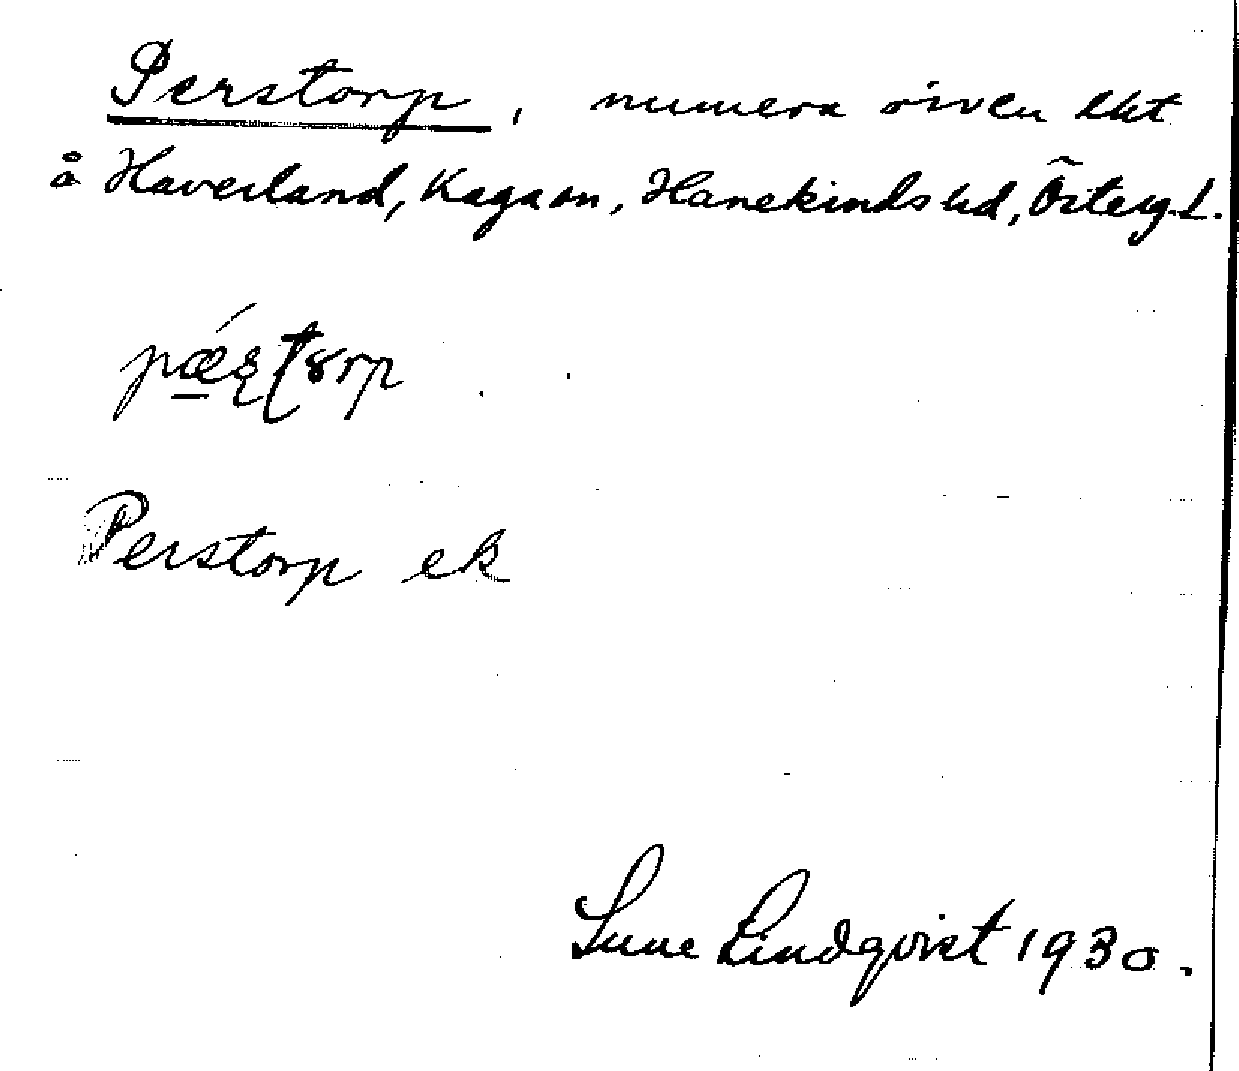 Perstorp, numera även lht
å Haverland, Kaga sn, Hanekinds hd, Österg. L.
Perstorp ek
Sune Lindqvist 1930.